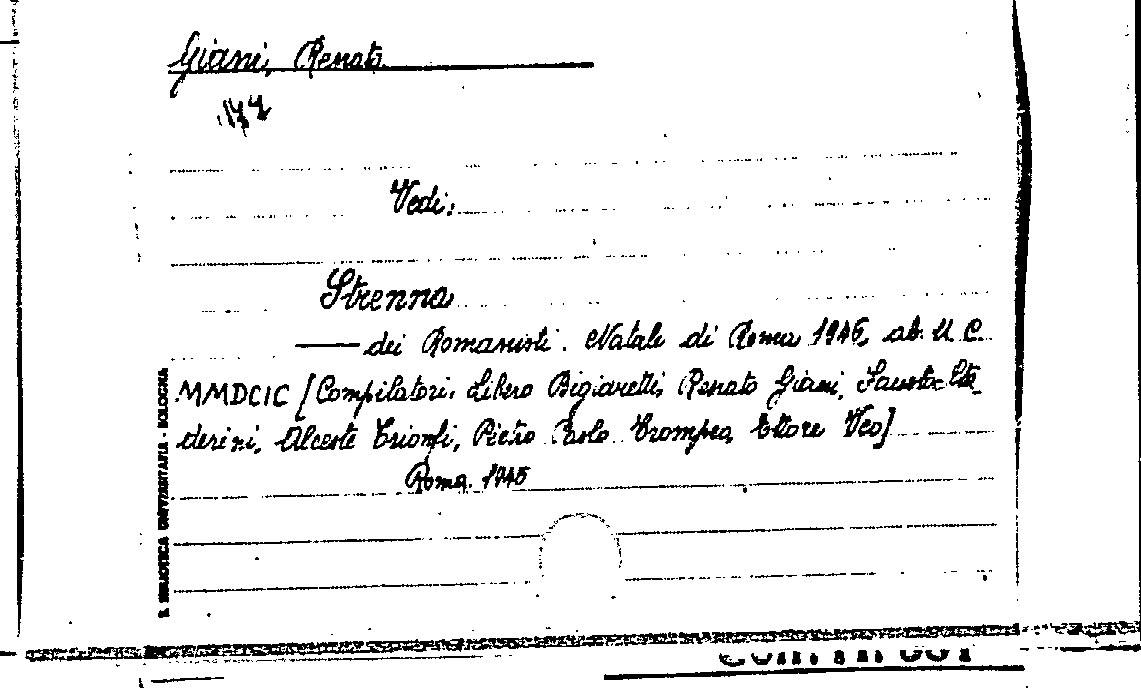 Giani, Renato
Vedi:
Strenna
—— dei Romanisti. Natale di Roma 1946, ab. U. C.
MMDCIC [Compilatori: Libero Bigiaretti, Renato Giani, Fausto
derini, Alceste Trionfi, Pietro Paolo Trompeo, Ettore Veo]
Roma. 1945
R. BIBLIOTECA UNIVERSITARIA - BOLOGNA